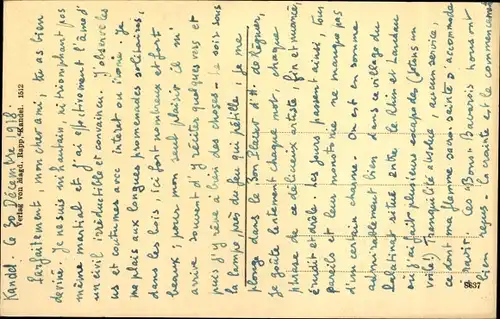 Kandel. le 30 Décembre 1918.
Parfaitement, mon cher ami, tu as bien
deviné. Je ne suis ni hautain, ni triomphant pas
même martial et j'ai effectivement l'âme d'
un civil irréductible et convaincu. J'observe les
us et coutumes avec intérêt ou ironie. Je
me plais aux longues promenades solitaires,
dans les bois, ici fort nombreux et fort
beaux; pour mon seul plaisir il m'
arrive souvent d'y réciter quelques vers et
puis j'y rêve à bien des choses. Le soir sous
la lampe, près du feu qui pétille, je me
plonge dans le Bon Plaisir d'H. de Régnier,
je goûte lentement chaque mot, chaque
phrase de ce délicieux artiste, fin et nuancé,
érudit et drôle. Les jours passent ainsi, tous
pareils et leur monotonie ne manque pas
d'un certain charme. On est en somme
admirablement bien dans ce village du
Palatinat situé entre le Rhin et Landau
où j'ai fait plusieurs escapades (jetons un
voile!) Tranquillité absolue, aucun service,
ce dont ma flemme sacro-sainte s'accommode
à ravir. Les "Bons" Bavarois nous ont
bien reçus. La crainte est le commencement
Verlag von Magd. Rapp, Kandel. 1512